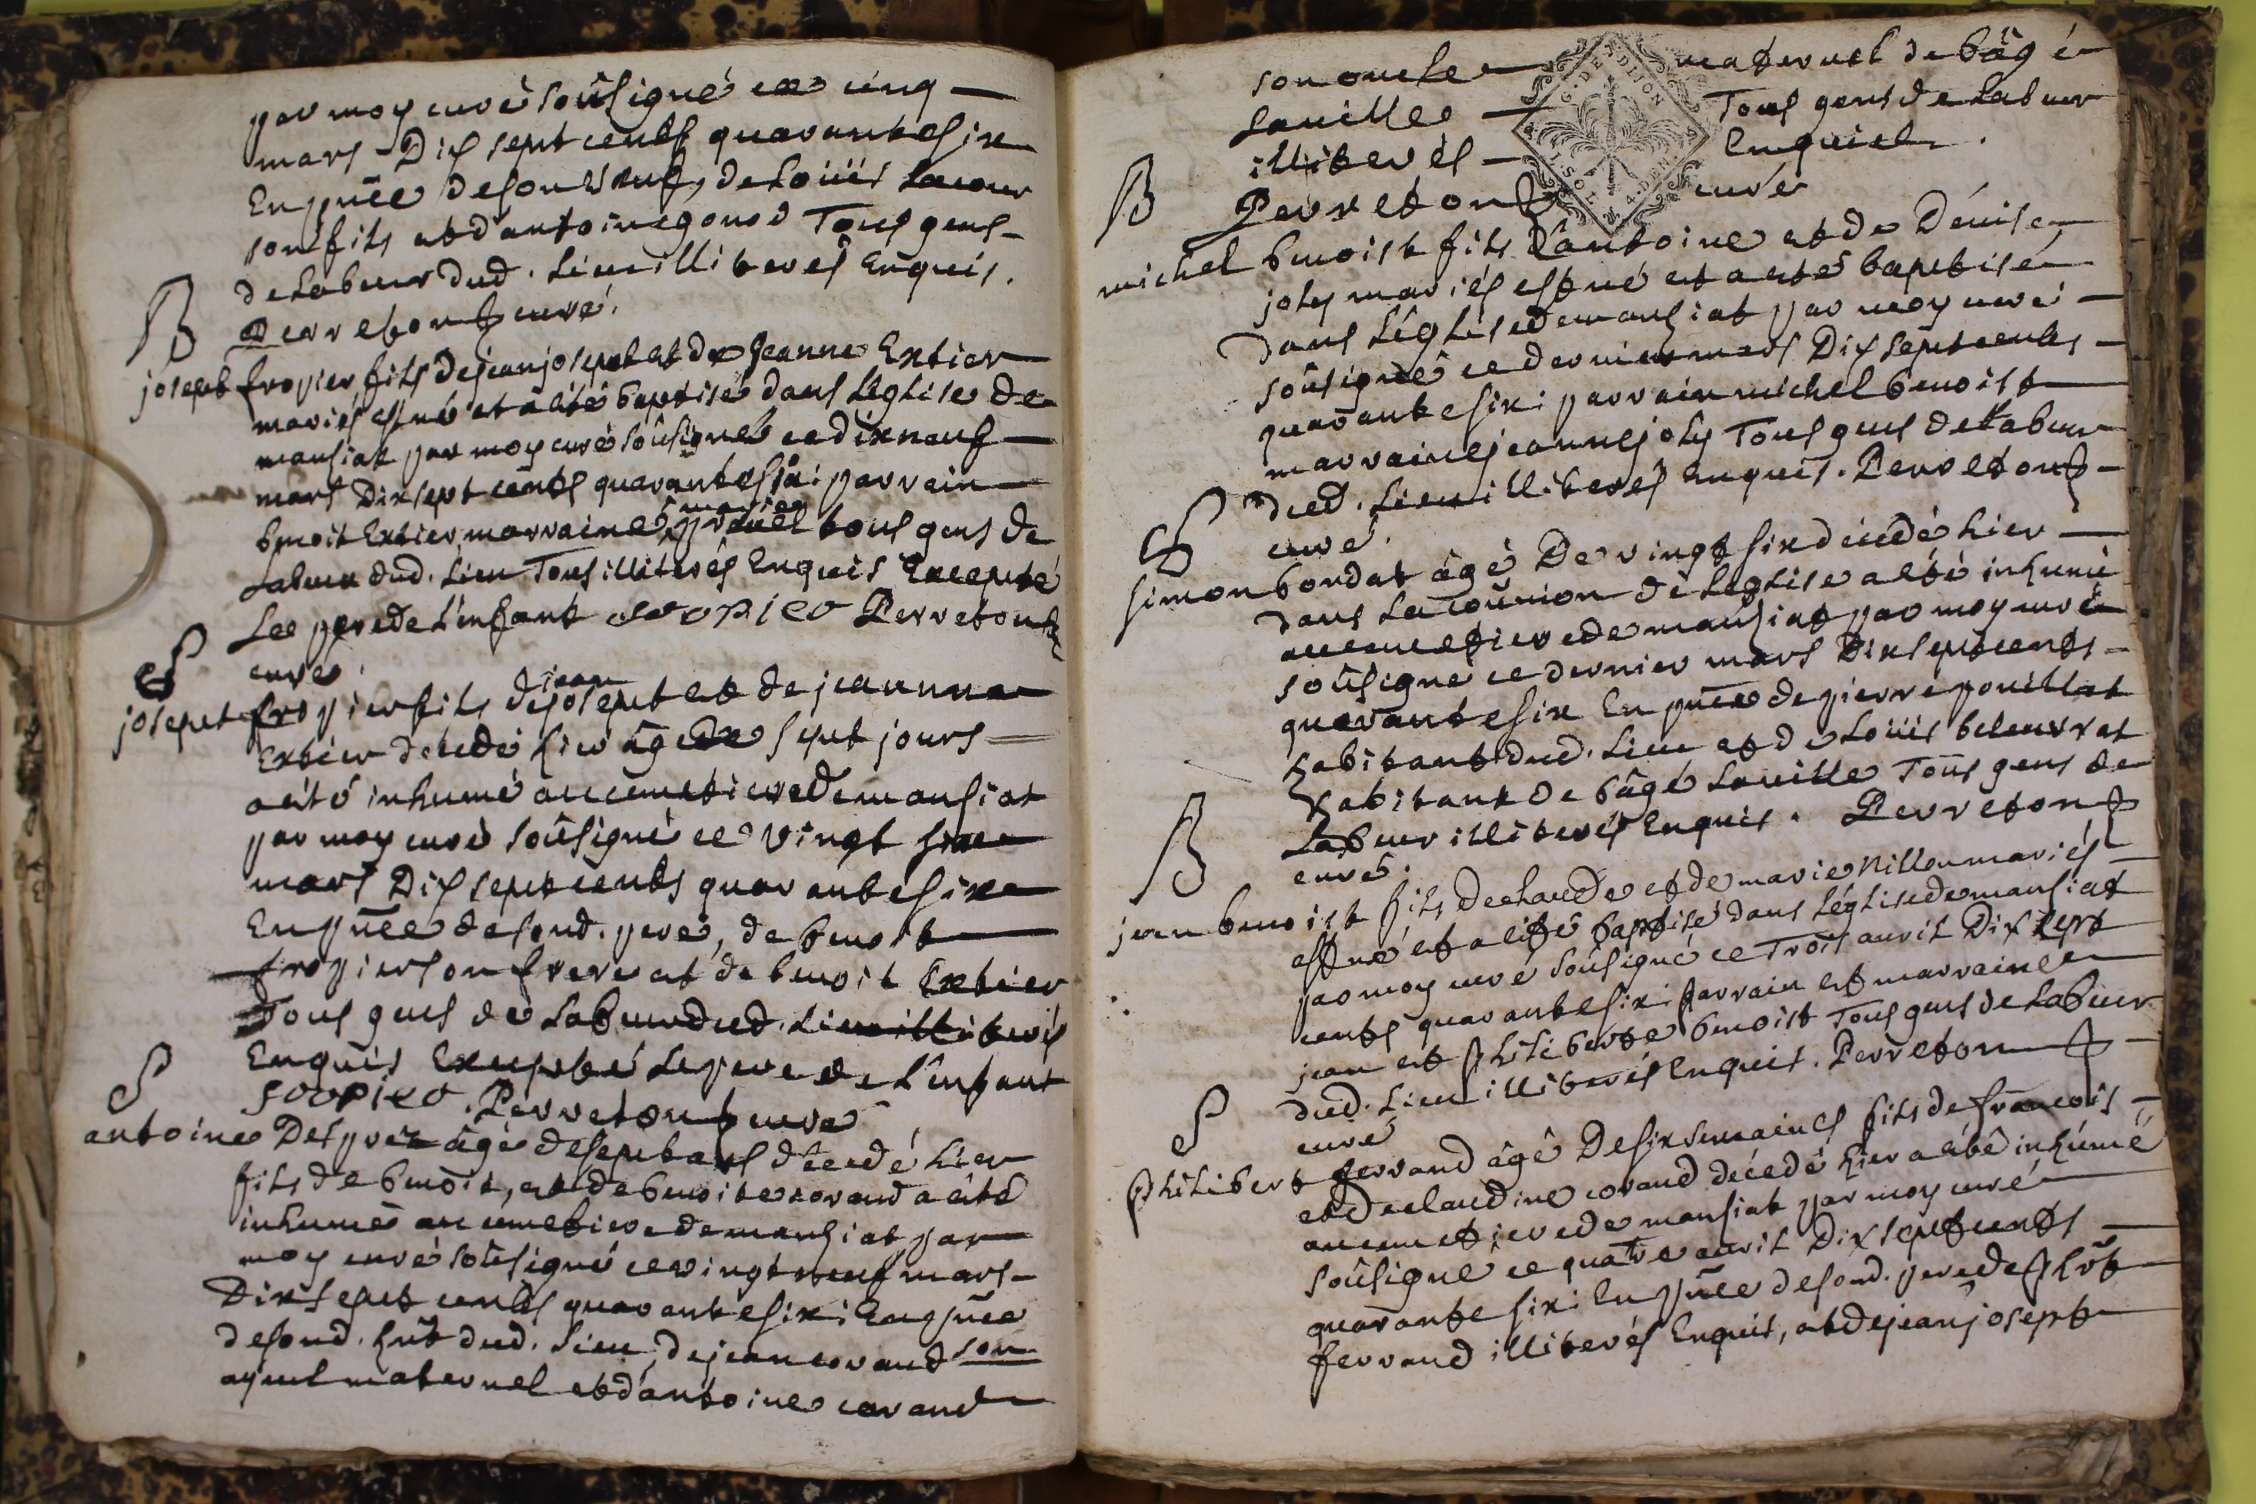 par moy curé soûsigné ce cinq
mars Dix sept cents quarante six
En pñce de son veuf, de Loüis Lacour
son fils et d'antoine gonod Tous gens
de Labeur dud. Lieu illiterés Enquis.
B
Perreton curé.
joseph fropier fils de jean joseph et de Jeanne Extier
mariés est né et a été baptisé dans L'église de
mansiat par moy curé soûsigné ce dix neuf
mars Dix sept cents quarante six: parrain
benoit Extier marraine marie tous gens de
Labeur dud. Lieu Tous illiterés Enquis Excepté
Le pere de L'enfant fropier Perreton
S
curé.
jean
joseph fropier fils de joseph et de jeanne
Extier décedé hier âgé de sept jours
a été inhumé au cimetiere de mansiat
par moy curé soûsigné ce vingt six
mars Dix sept cents quarante six
En pñce de sond. pere, de benoit
fropier son frere et de benoit Extier
Tous gens de Labeur dud. Lieu illiterés
Enquis Excepté Le pere de L'enfant
S
fropier. Perreton curé
antoine Desprez âgé de sept ans décedé hier
fils de benoit, et de benoite corand a été
inhumé au cimetiere de mansiat par
moy curé soûsigné ce vingt neuf mars
Dix sept cents quarante six: En pñce
de sond. dud. Lieu, de jean corand son
ayeul maternel et d'antoine corand
son oncle maternel de bâgé
La ville Tous gens de Labeur
illiterés Enquis.
B
Perreton curé
G. DE DIJON
4. DEN.
michel benoist fils d'antoine et de Dénise
joly mariés est né et a été baptisé
dans L'église de mansiat par moy curé
soûsigné ce dernier mars Dix sept cents
quarante six: parrain michel benoist
marraine jeanne joly Tous gens de Labeur
dud. Lieu illiterés Enquis. Perreton
S
curé.
simon bondat âgé De vingt six décedé hier
dans La coûnion de L'église a été inhumé
au cimetiere de mansiat par moy curé
soûsigné ce dernier mars Dix sept cents
quarante six En pñce de pierre pouillat
habitant dud. Lieu et de Loüis
habitant de bâgé La ville Tous gens de
B
Labeur illiterés Enquis. Perreton
curé.
jean benoist fils de claude et de marie Nillon mariés
est né et a été baptisé dans L'église de mansiat
par moy curé soûsigné ce Trois avril Dix sept
cents quarante six: parrain et marraine
jean et philiberte benoist Tous gens de Labeur
dud. Lieu illiterés Enquis. Perreton
S
curé
philibert ferrand âgé De six semaines fils de françois
et de claudine corand décedé hier a été inhumé
au cimetiere de mansiat par moy curé
soûsigné ce quatre avril Dix sept cents
quarante six: En pñce de sond. pere de phlbt
ferrand illiterés Enquis, et de jean joseph